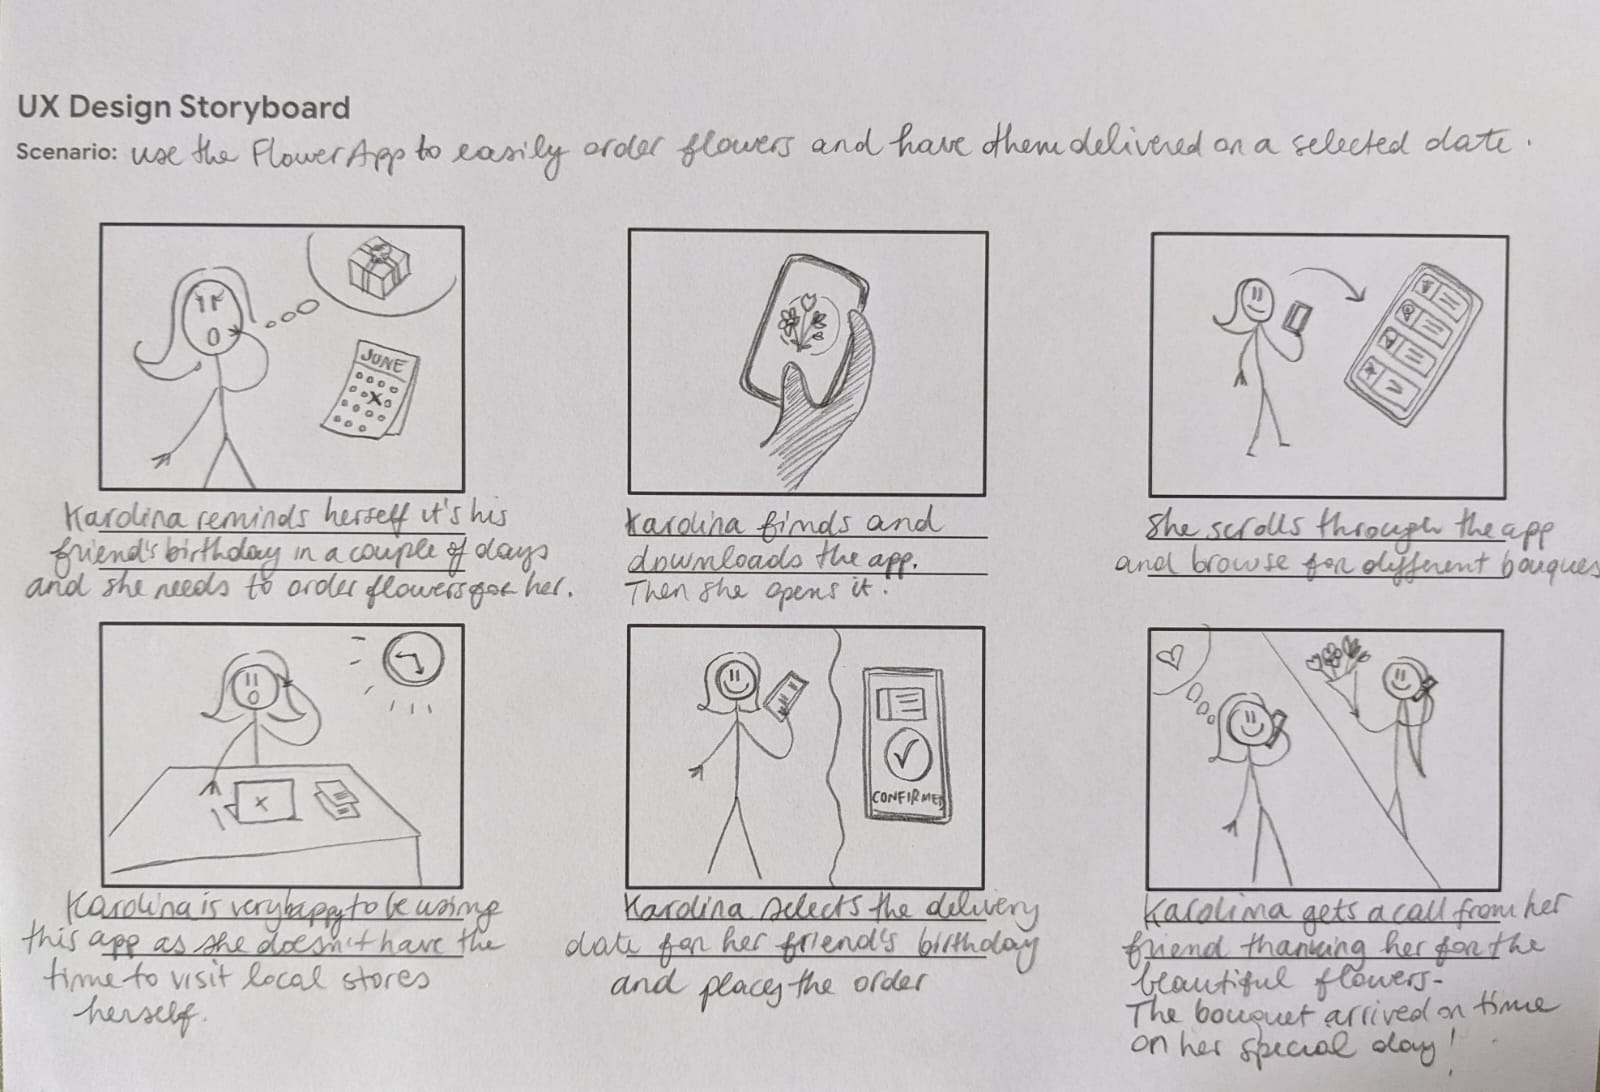 UX Design Storyboard
Scenario: use the FlowerApp to easily order flowers and have them delivered on a selected date.
JUNE
Karolina reminds herself it's his
friend's birthday in a couple of days
and she needs to order flowers for her.
Karolina finds and
downloads the app.
Then she opens it.
She scrolls through the app
and browse for different bouques
CONFIRMED
Karolina is very happy to be using
this app as she doesn't have the
time to visit local stores
herself.
Karolina selects the delivery
date for her friend's birthday
and places the order
Karolina gets a call from her
friend thanking her for the
beautiful flowers-
The bouquet arrived on time
on her special day!